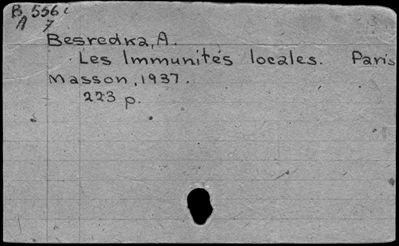 B 556
A 7
Besredka, A.
Les Immunités locales. Paris
Masson, 1937.
223 p.